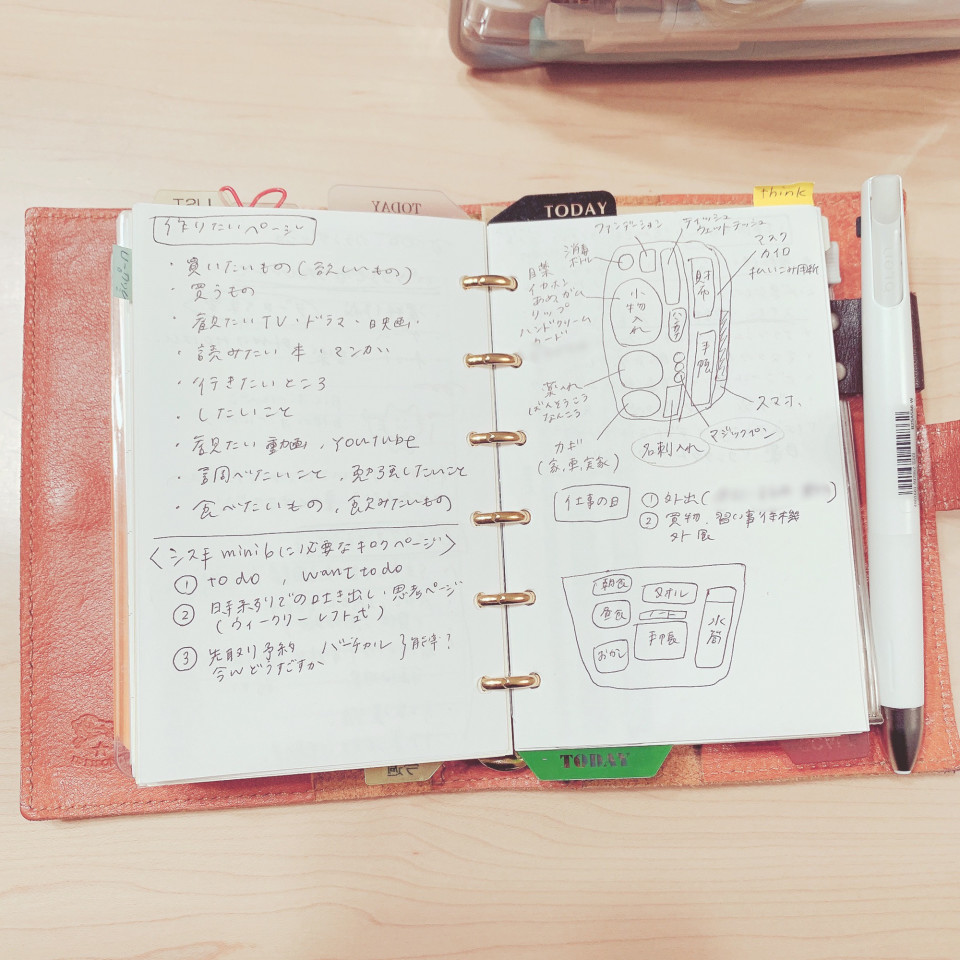 LIST
TODAY
TODAY
think
作りたいページ
・買いたいもの(欲しいもの)
・買うもの
・観たいTV・ドラマ・映画・
・読みたい本・マンガ
・行きたいところ
・したいこと
・観たい動画、YouTube
・調べたいこと、勉強したいこと
・食べたいもの、飲みたいもの
〈システ手mini6に必要なキロクページ〉
① to do , want to do
② 時系列での吐き出し・思考ページ
(ウィークリーレフト式)
③ 先取り予約 バーチカル
今んどうすだすか
ファンデーション
ティッシュ
ウェットテッシュ
消毒
ボトル
マスク
カイロ
払いこみ用紙
目薬
イヤホン
あめ ガム
リップ
ハンドクリーム
カード
小物
入れ
財布
ハンカチ
手帳
薬入れ
ばんそうこう
なんこう
スマホ、
カギ
(家,車,実家)
名刺入れ
マジックペン
仕事の日
① 外出( )
② 買物、習い事待機
外食
朝食
昼食
おかし
タオル
ノート
手帳
水筒
TODAY